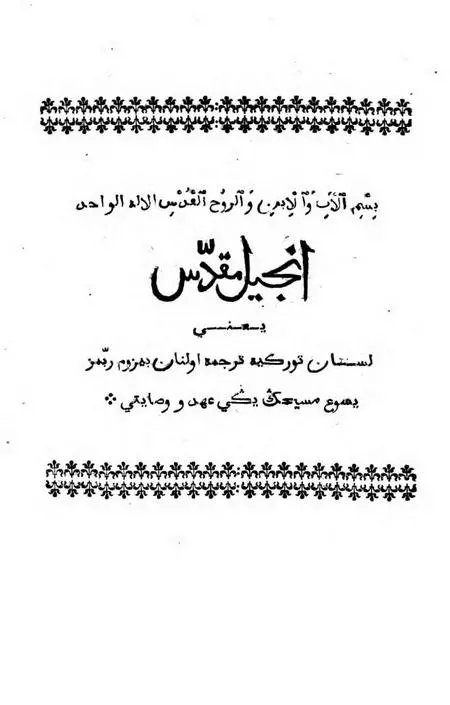 بِسْمِ ٱلْأَبِ وَٱلْاِبْنِ وَٱلرُوحُ ٱلْقُدُسِ الاله الواحد
انجيل مقدّس
يعني
لسان توركيه ترجمه اولنان بيزوم ربّمز
يسوع مسيحڭ يڭي عهد و وصايتي